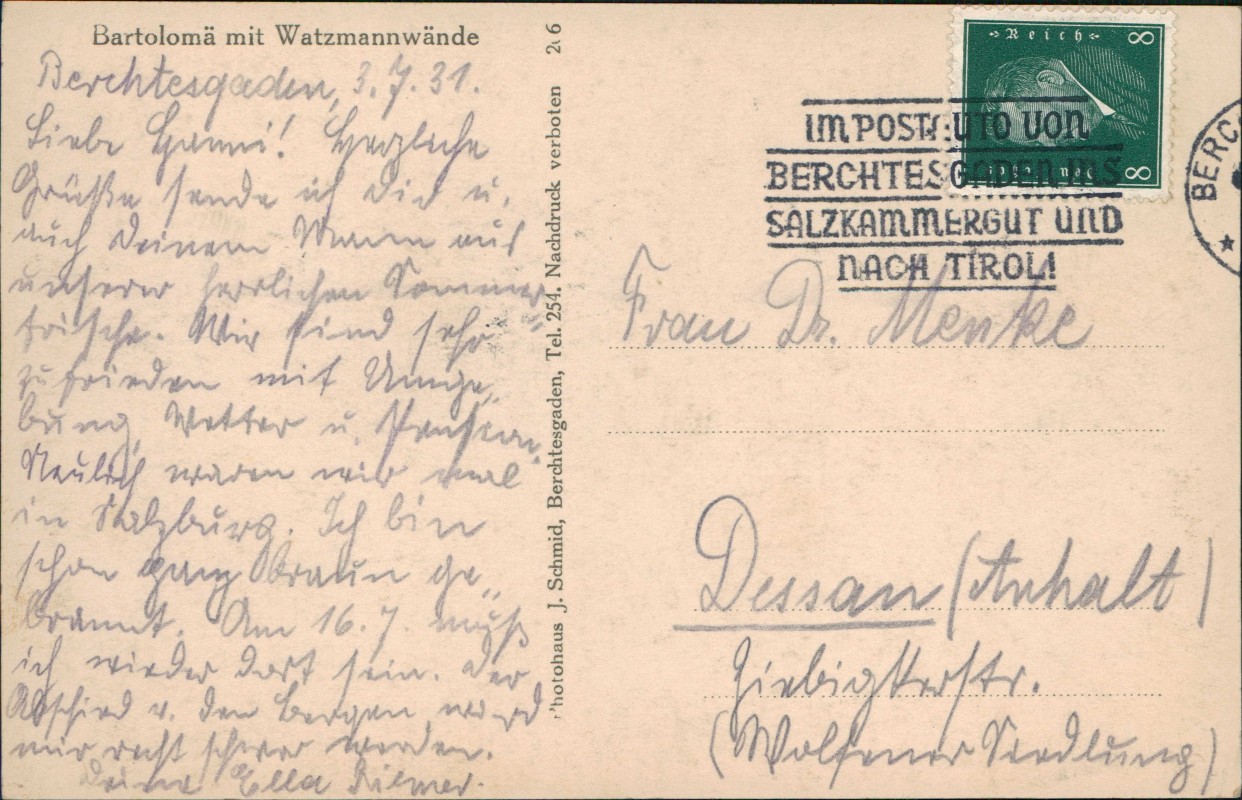 Bartolomä mit Watzmannwände
Berchtesgaden, 3. 7. 31.
Liebe Hanni! Herzliche
Grüße sende ich Dir u.
auch Deinem Mann aus
unserer herrlichen Sommer„
frische. Wir sind sehr
zufrieden mit Umge„
bung, Wetter u. Pension.
Neulich waren wir mal
in Salzburg. Ich bin
schon ganz braun ge„
brannt. Am 16. 7. muß
ich wieder dort sein. Der
Abschied v. den Bergen wird
mir recht schwer werden.
Deine Ella
Photohaus J. Schmid, Berchtesgaden, Tel. 254. Nachdruck verboten
Reich
8
8
IM POSTAUTO VON
BERCHTESGADEN INS
SALZKAMMERGUT UND
NACH TIROL!
BERC
Frau Dr. Menke
Dessau (Anhalt)
(Wolfener Siedlung)